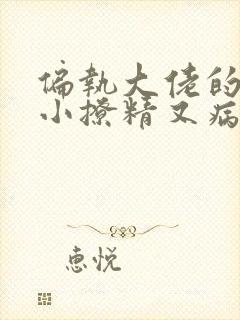 偏执大佬的
小撩精又病
惠悦